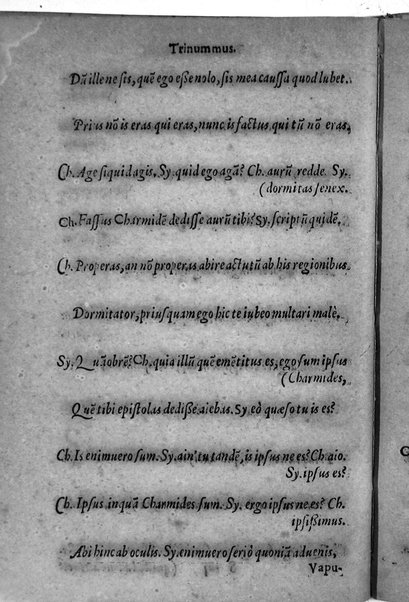 Trinummus.
Dũ ille ne sis, quẽ ego eße nolo, sis mea caussa quod lubet.
Prius nõ is eras qui eras, nunc is factus, qui tũ nõ eras,
Ch. Age siquid agis. Sy. quid ego agã? Ch. aurũ redde. Sy.
(dormitas senex.
Ch. Fassus Charmidẽ dedisse aurũ tibi? Sy. scriptũ quidẽ.
Ch. Properas, an nõ properas abire actutũ ab his regionibus.
Dormitator, priusquam ego hic te iubeo multari malè.
Sy. Quãobrẽ? Ch. quia illũ quẽ emẽtitus es, ego sum ipsus
(Charmides,
Quẽ tibi epistolas dediße aiebas. Sy eò quæso tu is es?
Ch. Is enimuero sum. Sy. ain' tu tandẽ, is ipsus ne es? Ch. aio.
Sy. ipsus es?
Ch. Ipsus inquã Charmides sum. Sy. ergo ipsus ne es? Ch.
ipsißimus.
Abi hinc ab oculis. Sy. enimuero seriò quoniã aduenis,
Vapu-